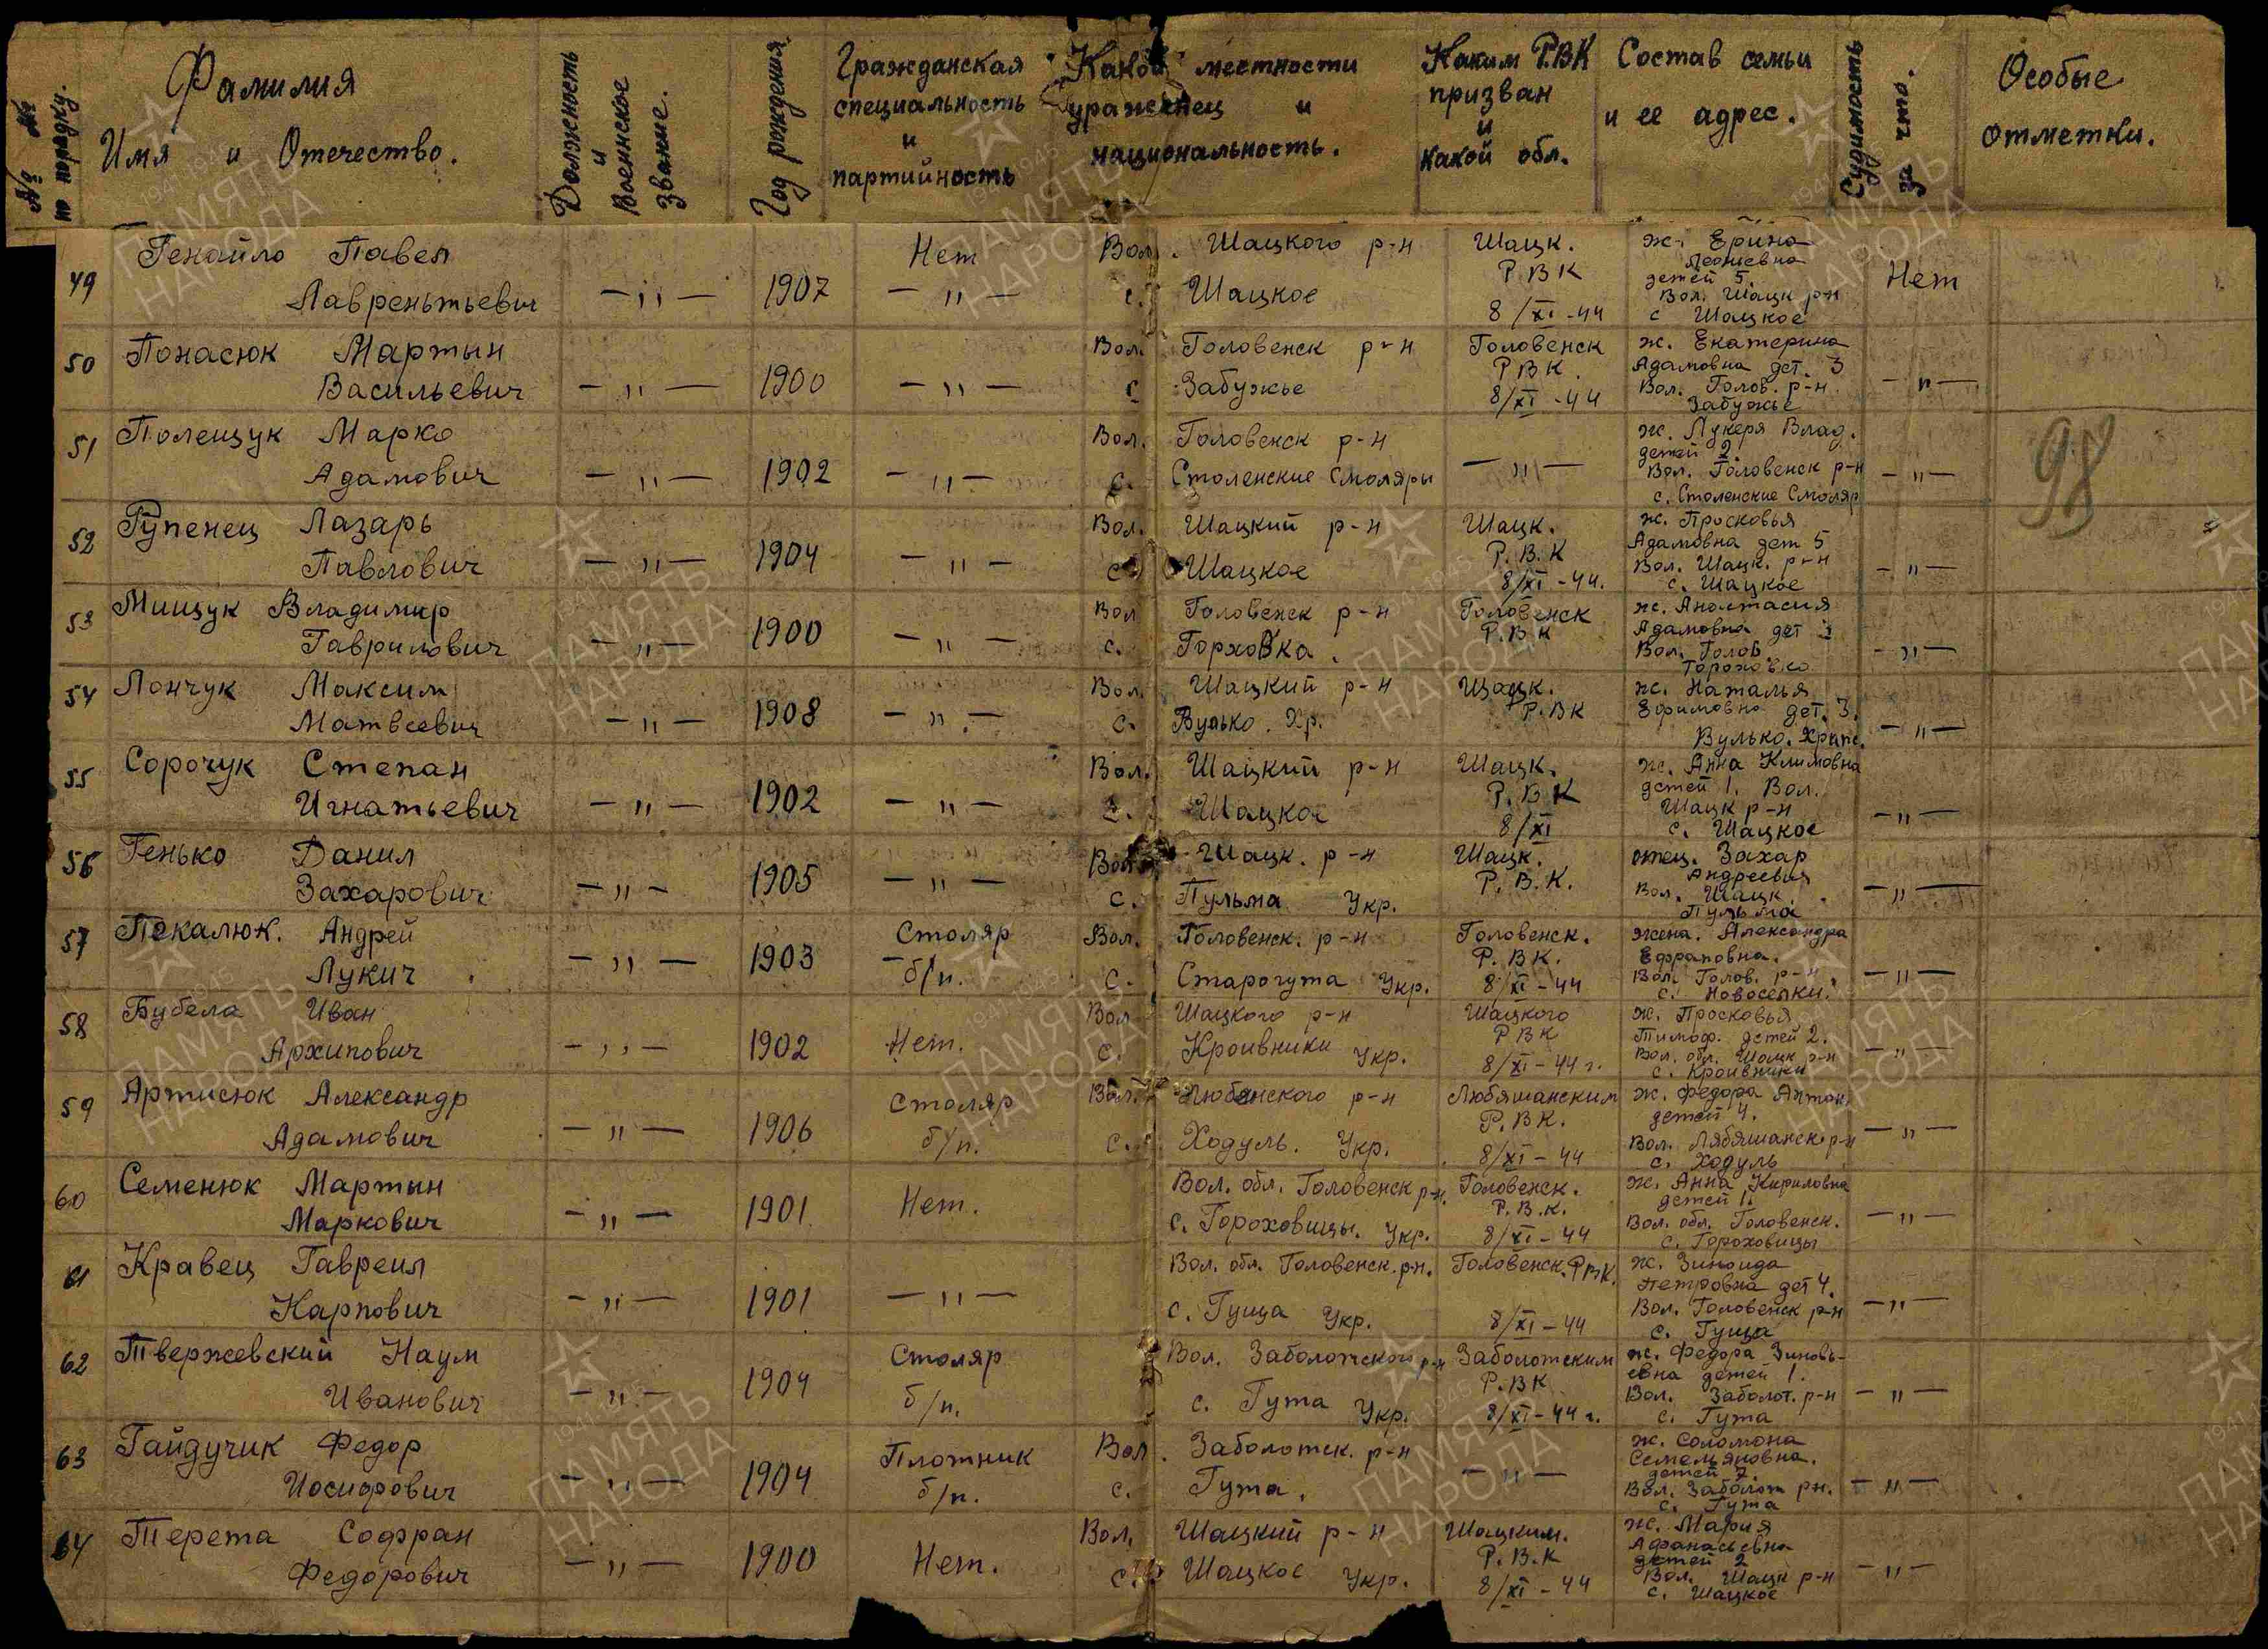 № №
по порядку.
Фамилия
Имя и Отечество.
Должность
и
Военнское
звание.
Год рождения
Гражданская
специальность
и
партийность
Какой местности
уроженец и
национальность.
Каким Р.В.К
призван
и
какой обл.
Состав семьи
и ее адрес.
Судимость
за что.
Особые
отметки.
49 Генайло Павел Нет Вол. Шацкого р-н Шацк. ж. Ерина
Лаврентьевич — " — 1907 — " — с. Шацкое Р В К 8/XI-44 детей 5. Вол. Шацк р-н с Шацкое Нет
50 Понасюк Мартын Вол. Головенск р-н Головенск ж. Екатерина
Васильевич — " — 1900 — " — с Забужье Р В К. 8/XI-44 Адамовна дет. 3 Вол. Голов. р-н Забужье — " —
51 Полещук Марко Вол. Головенск р-н ж. Лукеря Влад.
Адамович — " — 1902 — " — с. Столенские Смоляры — " — детей 2. Вол. Головенск р-н с. Столенские Смоляр — " —
98
52 Гупенец Лазарь Вол. Шацкий р-н Шацк. ж. Просковья
Павлович — " — 1904 — " — с Шацкое Р.В.К 8/XI-44. Адамовна дет 5 Вол. Шацк. р-н с. Шацкое — " —
53 Мищук Владимир Вол Головенск р-н Головенск ж. Анастасия
Гаврилович — " — 1900 — " — с. Горховка. Р.В К Адамовна дет Вол. Голов. Горохо́вка — " —
54 Лончук Максим Вол. Шацкий р-н Шацк. ж. Наталья
Матвеевич — " — 1908 — " — с. Вулько. Хр. Р.ВК Ефимовна дет. 3. Вулько. Хрипс. — " —
55 Сорочук Степан Вол. Шацкий р-н Шацк. ж. Анна Климовна
Игнатьевич — " — 1902 — " — с. Шацкое Р.В К 8/XI детей 1. Вол. Шацк р-н с. Шацкое — " —
56 Генько Данил Вол. Шацк. р-н Шацк. отец. Захар
Захарович — " — 1905 — " — с. Пульма Укр. Р.В.К. Андреевич Вол. Шацк. Пульма — " —
57 Пекалюк. Андрей Столяр Вол. Головенск. р-н Головенск. жена. Александра
Лукич — " — 1903 б/п. с. Старогута Укр. Р.В К. 8/XI-44 Ефраповна. Вол. Голов. р-н. с. Новоселки. — " —
58 Бубела Иван Вол Шацкого р-н Шацкого ж. Просковья
Архипович — " — 1902 Нет. с. Кроивники Укр. Р В К 8/XI-44 г. Тимоф. детей 2. Вол. обл. Шацк р-н с. Кроивники — " —
59 Артисюк Александр Столяр Вол. Любянского р-н Любяшанским ж. Федора Антон.
Адамович — " — 1906 б/п. с. Ходуль. Укр. Р.В К. 8/XI-44 детей 4. Вол. Лябяшанск. р-н с. Ходуль — " —
60 Семенюк Мартын Вол. обл. Головенск р-н. Головенск. ж. Анна Кириловна
Маркович — " — 1901 Нет. с. Гороховищы. Укр. Р.В.К. 8/XI-44 детей 1. Вол. обл. Головенск. с. Гороховищы — " —
61 Кравец Гавреил Вол. обл. Головенск. р-н. Головенск. РВК. ж. Зиноида
Карпович — " — 1901 — " — с. Гуща Укр. 8/XI-44 Петровна дет 4. Вол. Головенск р-н с. Гуща — " —
62 Твержевский Наум Столяр Вол. Заболотского р-н Заболотским ж. Федора Зиновь-
Иванович — " — 1904 б/п. с. Гута Укр. Р.ВК 8/XI-44 г. евна детей 1. Вол. Заболот. р-н с. Гута — " —
63 Гайдучик Федор Плотник Вол. Заболотск. р-н ж. Соломона
Иосифович — " — 1904 б/п. с. Гута. — " — Семельяновна. детей 7. Вол. Заболот р-н. с. Гута — " —
64 Терета Софран Вол. Шацкий р-н Шацким. ж. Мария
Федорович — " — 1900 Нет. с. Шацкое Укр. Р.В.К 8/XI-44 Афанасьевна детей 2 Вол. Шацк р-н с. Шацкое — " —
ПАМЯТЬ
НАРОДА